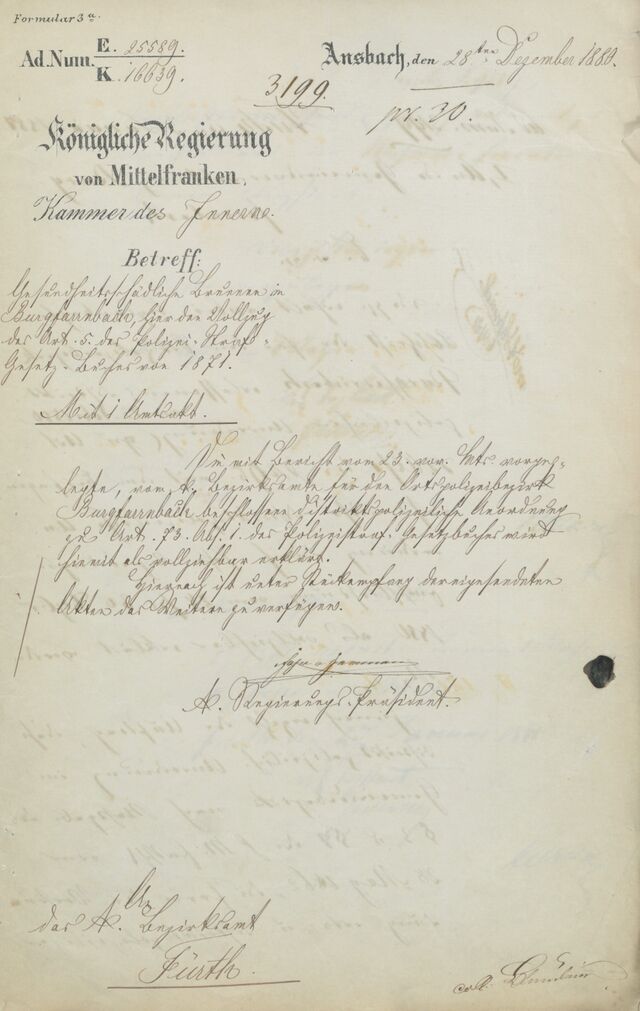 Formular 3a.
Ad. Num. E. 25589.
K. 16639.
Ansbach, den 28ten Dezember 1880.
3199.
pr. 30.
Königliche Regierung
von Mittelfranken,
Kammer des Innern.
Betreff:
Gesundheitsschädliche Brunnen in
Burgfarrnbach, hier den Vollzug
des Art. 5. des Polizei-Straf-
Gesetz-Buches von 1871.
Mit 1 Amtsakt.
Die mit Bericht vom 23. vor. Mts. vorge-
legte, vom k. Bezirksamte für den Ortspolizeibezirk
Burgfarrnbach beschlossene distriktspolizeiliche Anordnung
zu Art. 73. Abs. 1. des Polizeistraf-Gesetzbuches wird
hiemit als vollziehbar erklärt.
Hiernach ist unter Rückempfang der eingesendeten
Akten das Weitere zu verfügen.
K. Regierungs-Präsident.
An
das K. Bezirksamt
Fürth.
coll.